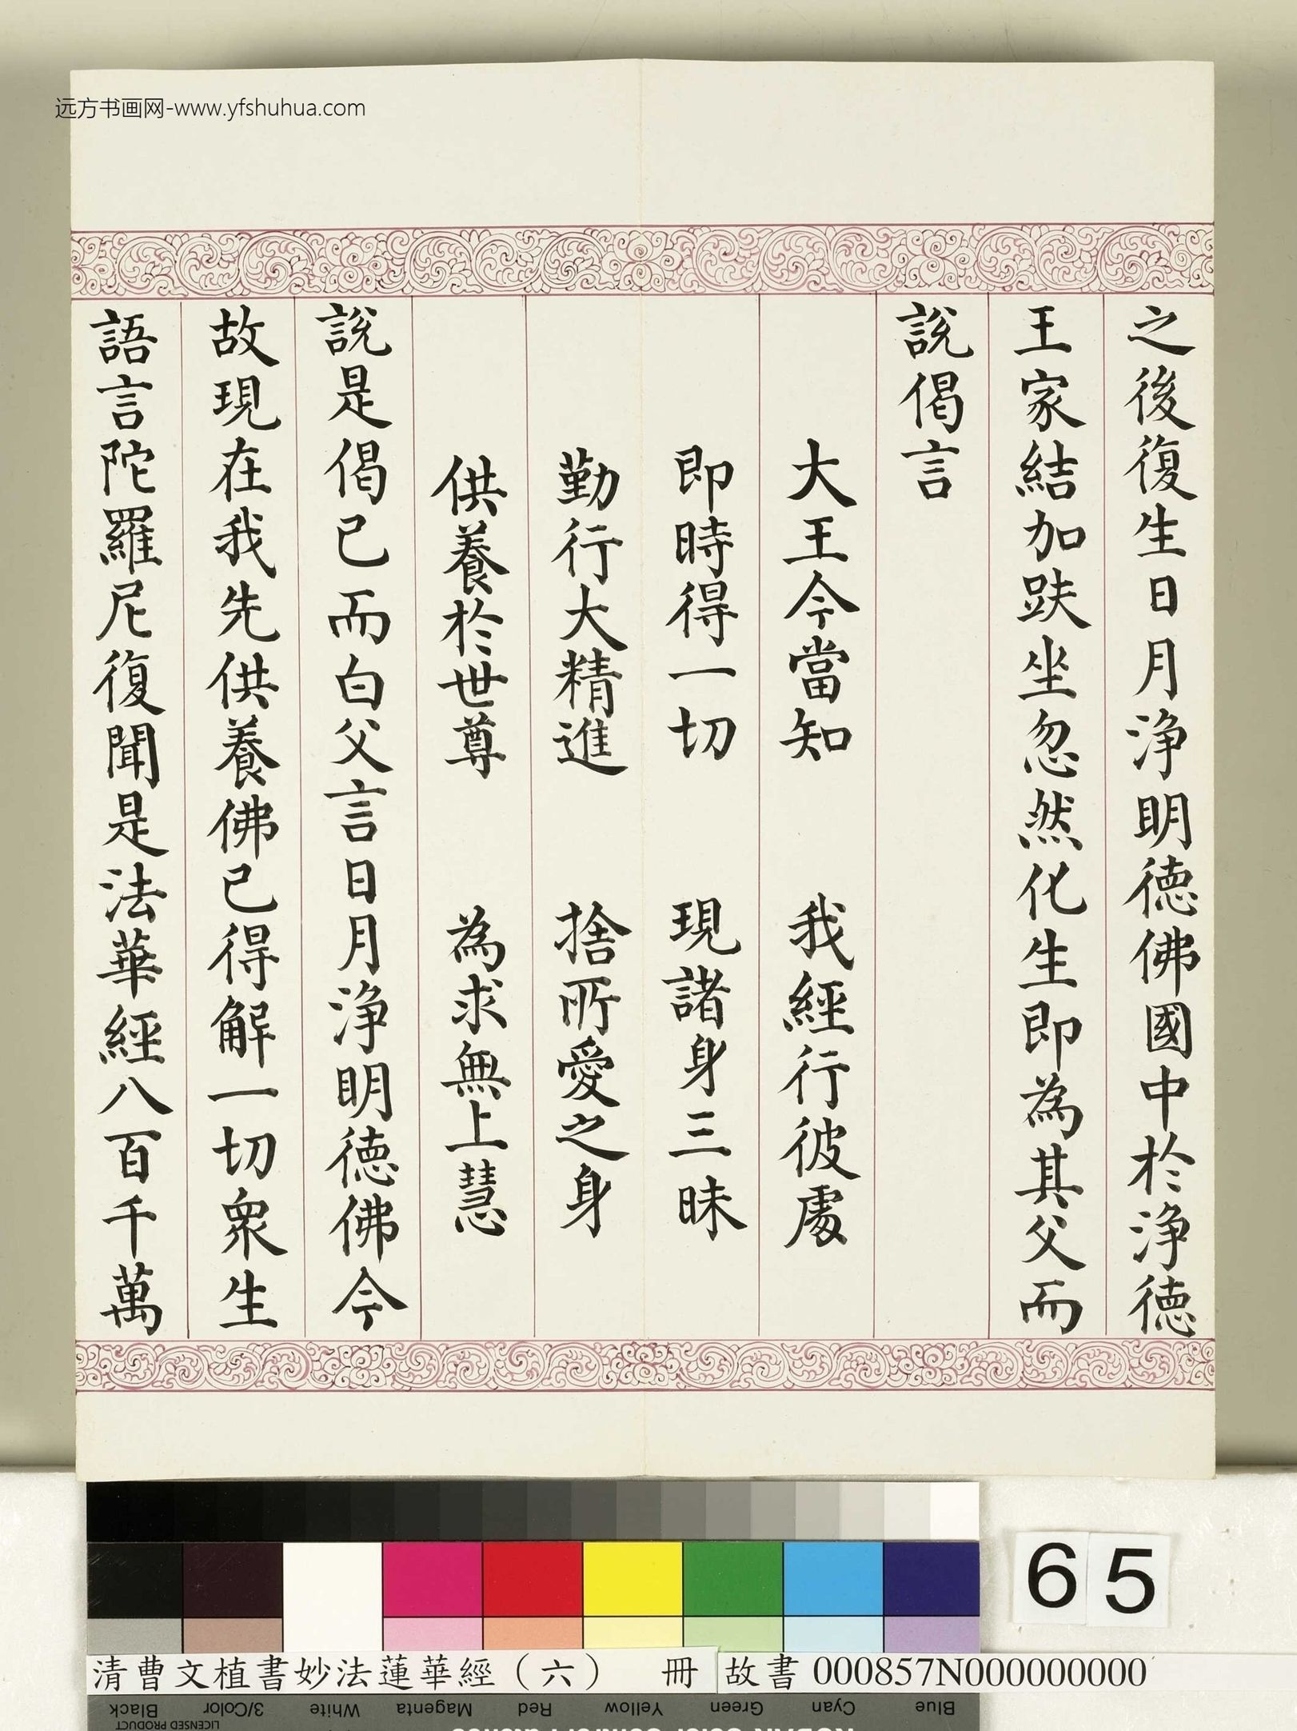 远方书画网-www.yfshuhua.com
之後復生日月浄明德佛國中於浄德
王家結加趺坐忽然化生即為其父而
說偈言
大王今當知　我經行彼處
即時得一切　現諸身三昧
勤行大精進　捨所愛之身
供養於世尊　為求無上慧
說是偈已而白父言日月浄明德佛今
故現在我先供養佛已得解一切衆生
語言陀羅尼復聞是法華經八百千萬
65
清曹文植書妙法蓮華經（六） 冊 故書 000857N000000000
Black 3/Color White Magenta Red Yellow Green Cyan Blue
LICENSED PRODUCT